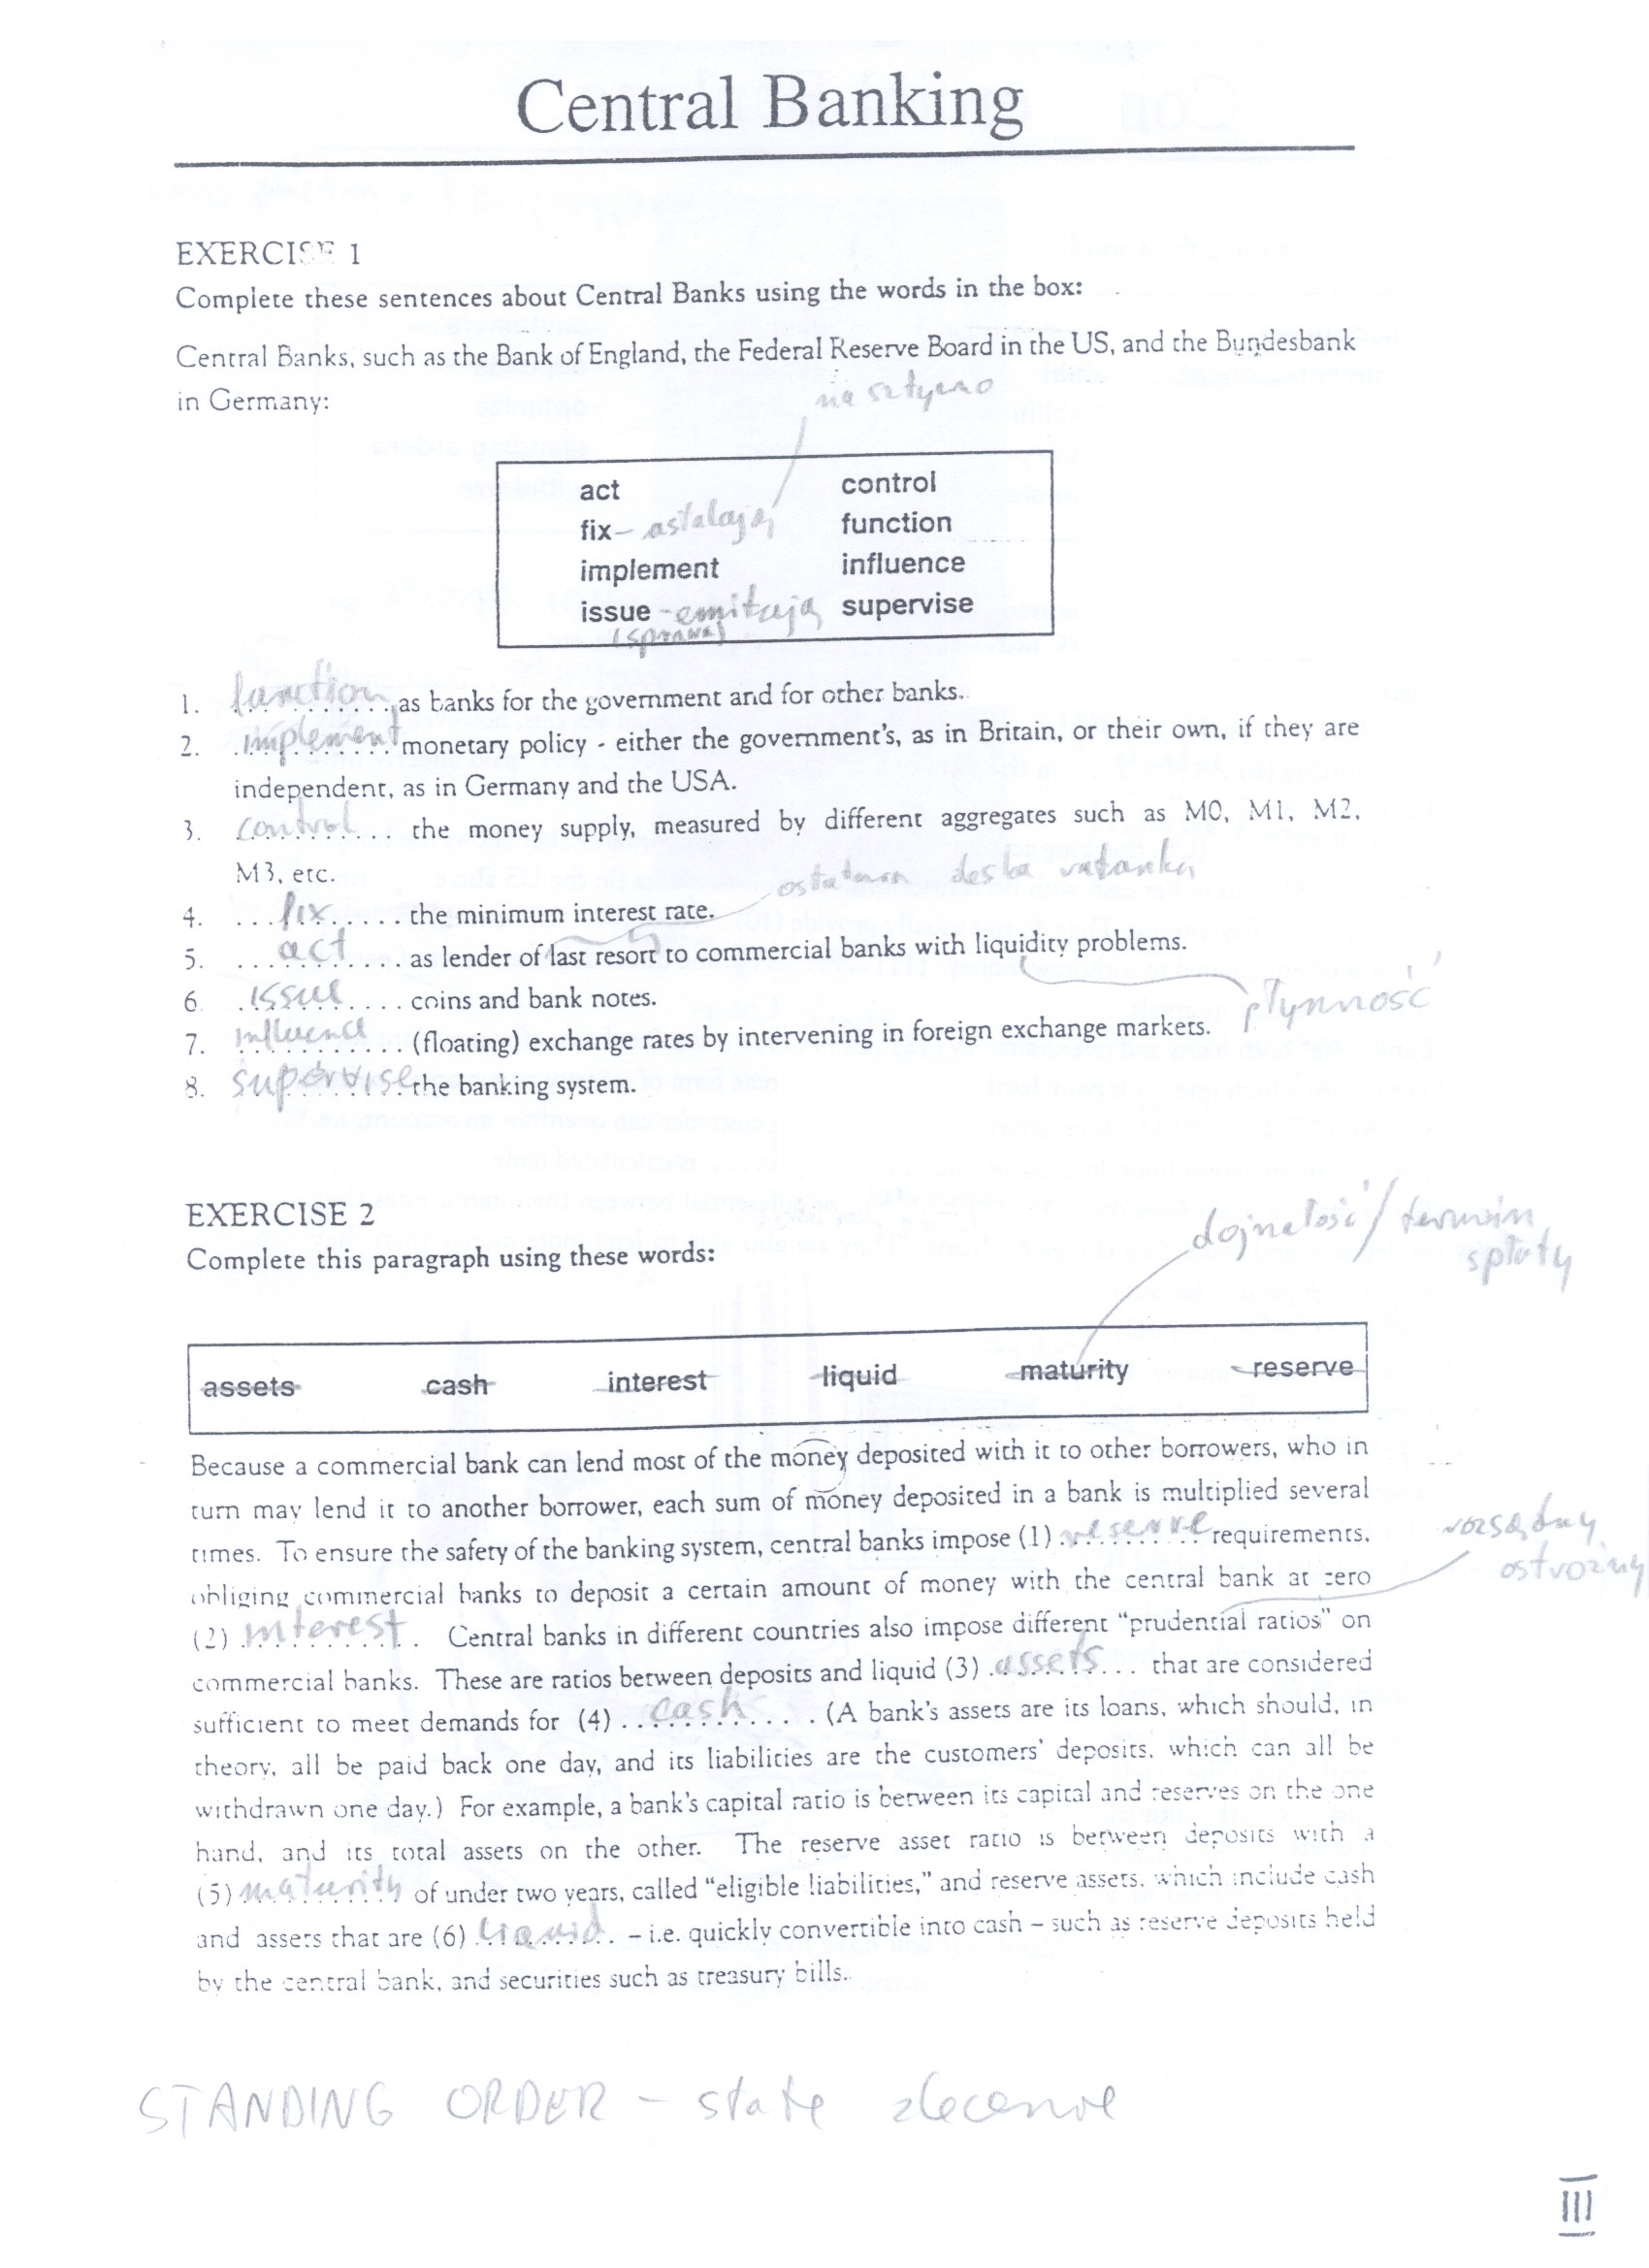 Central Banking
EXERCISE 1
Complete these sentences about Central Banks using the words in the box:
Central Banks, such as the Bank of England, the Federal Reserve Board in the US, and the Bundesbank
in Germany:
na sztywno
act control
fix – ustalają function
implement influence
issue - emitują supervise
(sprawa)
1. function as banks for the government and for other banks.
2. implement monetary policy - either the government's, as in Britain, or their own, if they are
independent, as in Germany and the USA.
3. control the money supply, measured by different aggregates such as M0, M1, M2,
M3, etc.
ostatnia deska ratunku
4. fix the minimum interest rate.
5. act as lender of last resort to commercial banks with liquidity problems.
6. issue coins and bank notes.
płynność
7. influence (floating) exchange rates by intervening in foreign exchange markets.
8. supervise the banking system.
EXERCISE 2
dojrzałość / termin
spłaty
Complete this paragraph using these words:
assets cash interest liquid maturity reserve
Because a commercial bank can lend most of the money deposited with it to other borrowers, who in
turn may lend it to another borrower, each sum of money deposited in a bank is multiplied several
times. To ensure the safety of the banking system, central banks impose (1) reserve requirements,
rozsądny
ostrożny
obliging commercial banks to deposit a certain amount of money with the central bank at zero
(2) interest. Central banks in different countries also impose different "prudential ratios" on
commercial banks. These are ratios between deposits and liquid (3) assets that are considered
sufficient to meet demands for (4) cash. (A bank's assets are its loans, which should, in
theory, all be paid back one day, and its liabilities are the customers' deposits, which can all be
withdrawn one day.) For example, a bank's capital ratio is between its capital and reserves on the one
hand, and its total assets on the other. The reserve asset ratio is between deposits with a
(5) maturity of under two years, called "eligible liabilities," and reserve assets, which include cash
and assets that are (6) liquid – i.e. quickly convertible into cash – such as reserve deposits held
by the central bank, and securities such as treasury bills.
STANDING ORDER – stałe zlecenie
III